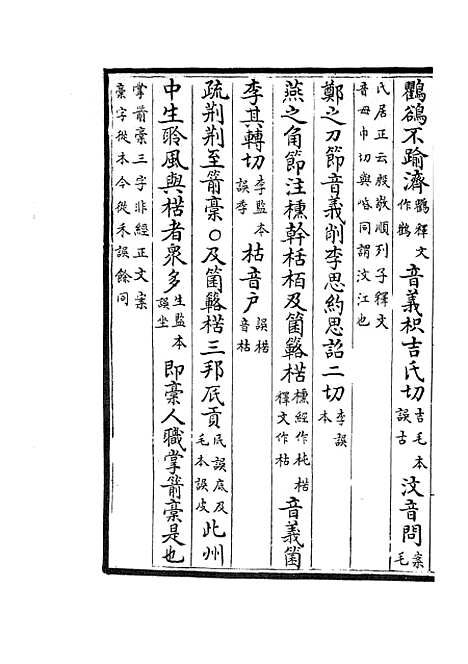 鸜鵒不踰濟鸜釋文作鸛音義枳吉氏切吉毛本誤古汶音問案毛
氏居正云殷敬順列子釋文音毋巾切與㟭同謂汶江也
鄭之刀節音義削李思約思詔二切李誤本
燕之角節注櫄幹栝栢及箘簵楛櫄經作杶楛釋文作枯音義箘
李其轉切李監本誤季枯音戶誤楛音枯
疏荆荆至箭槀○及箘簵楛三邦厎貢厎誤底及毛本誤皮此州
中生聆風與楛者衆多生監本誤坐即槀人職掌箭槀是也
掌箭槀三字非經正文案槀字從木今從禾誤餘同